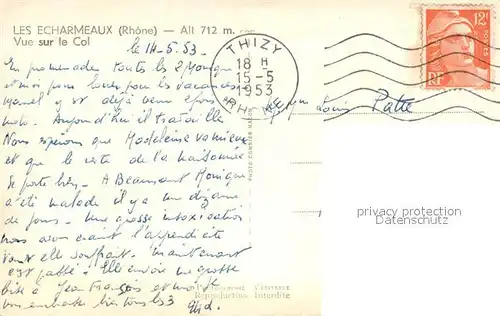 LES ECHARMEAUX (Rhône) — Alt 712 m.
Vue sur le Col
le 14.5.53.
En promenade toutes les 2 Monique
et moi pour louer pour les vacances
Marcel y est déjà venu 2 fois
moto. Aujourd'hui il travaille
Nous espérons que Madeleine va mieux
et que le reste de la maisonnée
se porte bien. A Beaumont Monique
a été malade il y a une dizaine
de jours. Une grosse intoxication
nous avons craint l'appendicite
tant elle souffrait. maintenant
c'est passé. Elle envoie une grosse
bise à Jean François et moi je
vous embrasse bien tous les 3
THIZY
18 H
15-5
1953
RHONE
12F
POSTES
RF
Louis Patte
Reproduction Interdite
privacy protection
Datenschutz